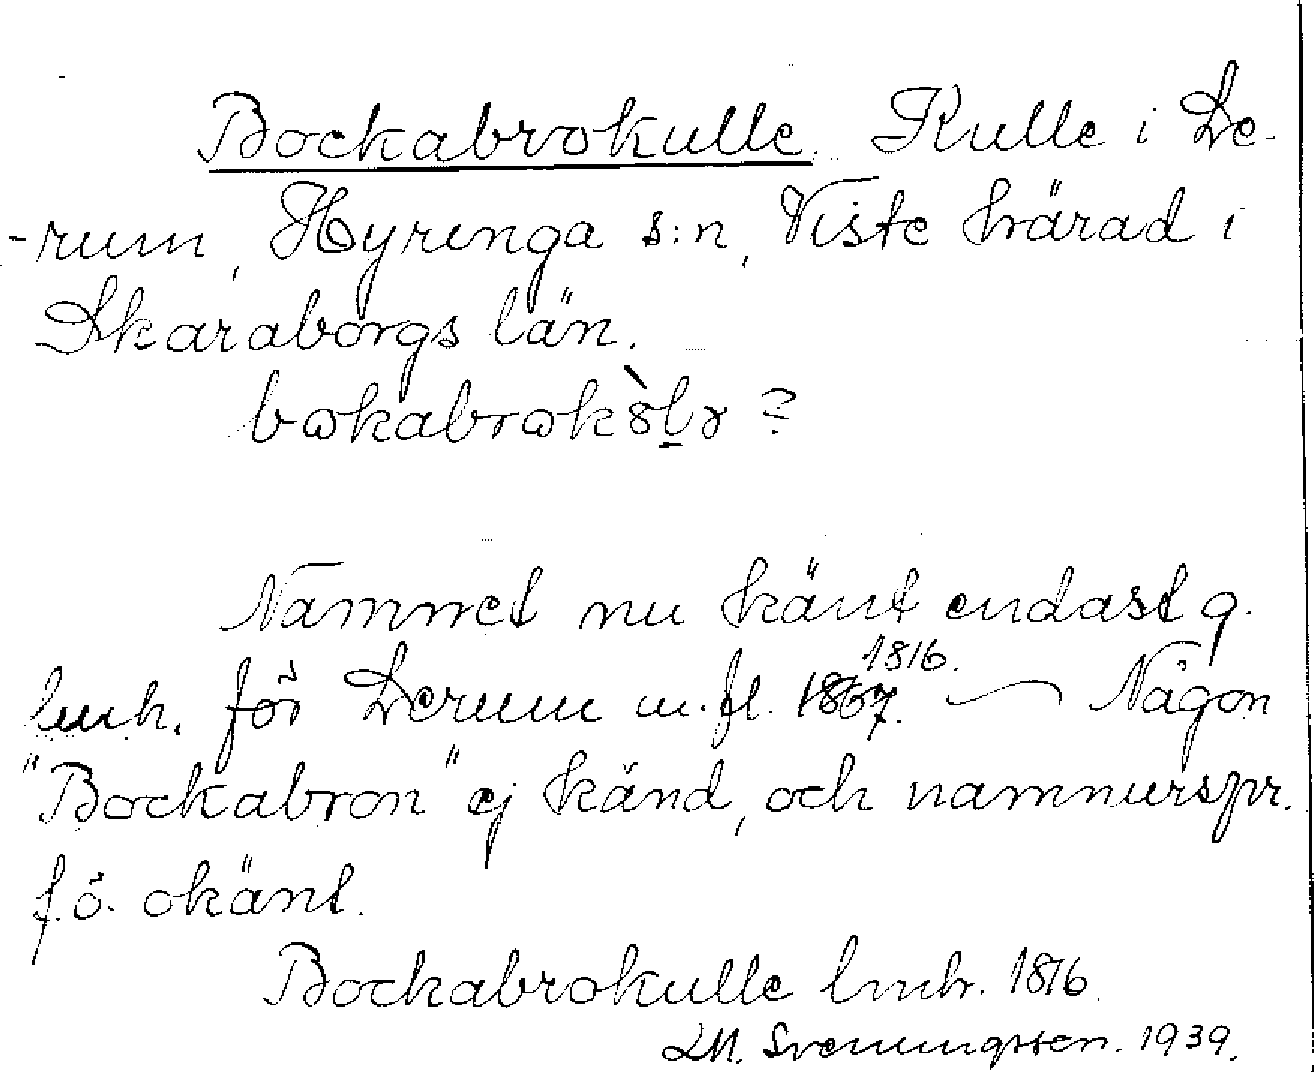 Bockabrokulle. Kulle i De-
-rum, Hyringa s:n, Viste härad i
Skaraborgs län.
bokabrok
Namnet nu känt endast g.
lmh. för Derum m.fl. 1867. 1816. — Någon
"Bockabron" ej känd, och namnurspr.
f.ö. okänt.
Bockabrokulle lmh. 1816.
LM. Svenungsson. 1939.